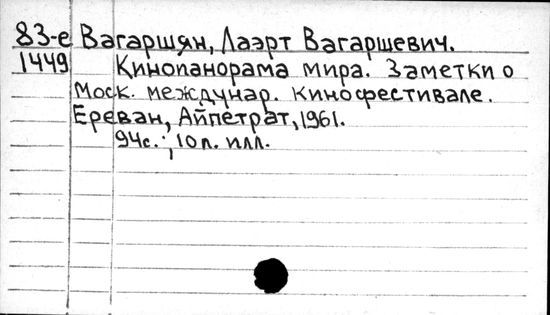 83-е Вагаршян, Лаэрт Вагаршевич.
1449 Кинопанорама мира. Заметки о
Моск. междунар. кинофестивале.
Ереван, Айпетрат, 1961.
94с.; 10л. илл.